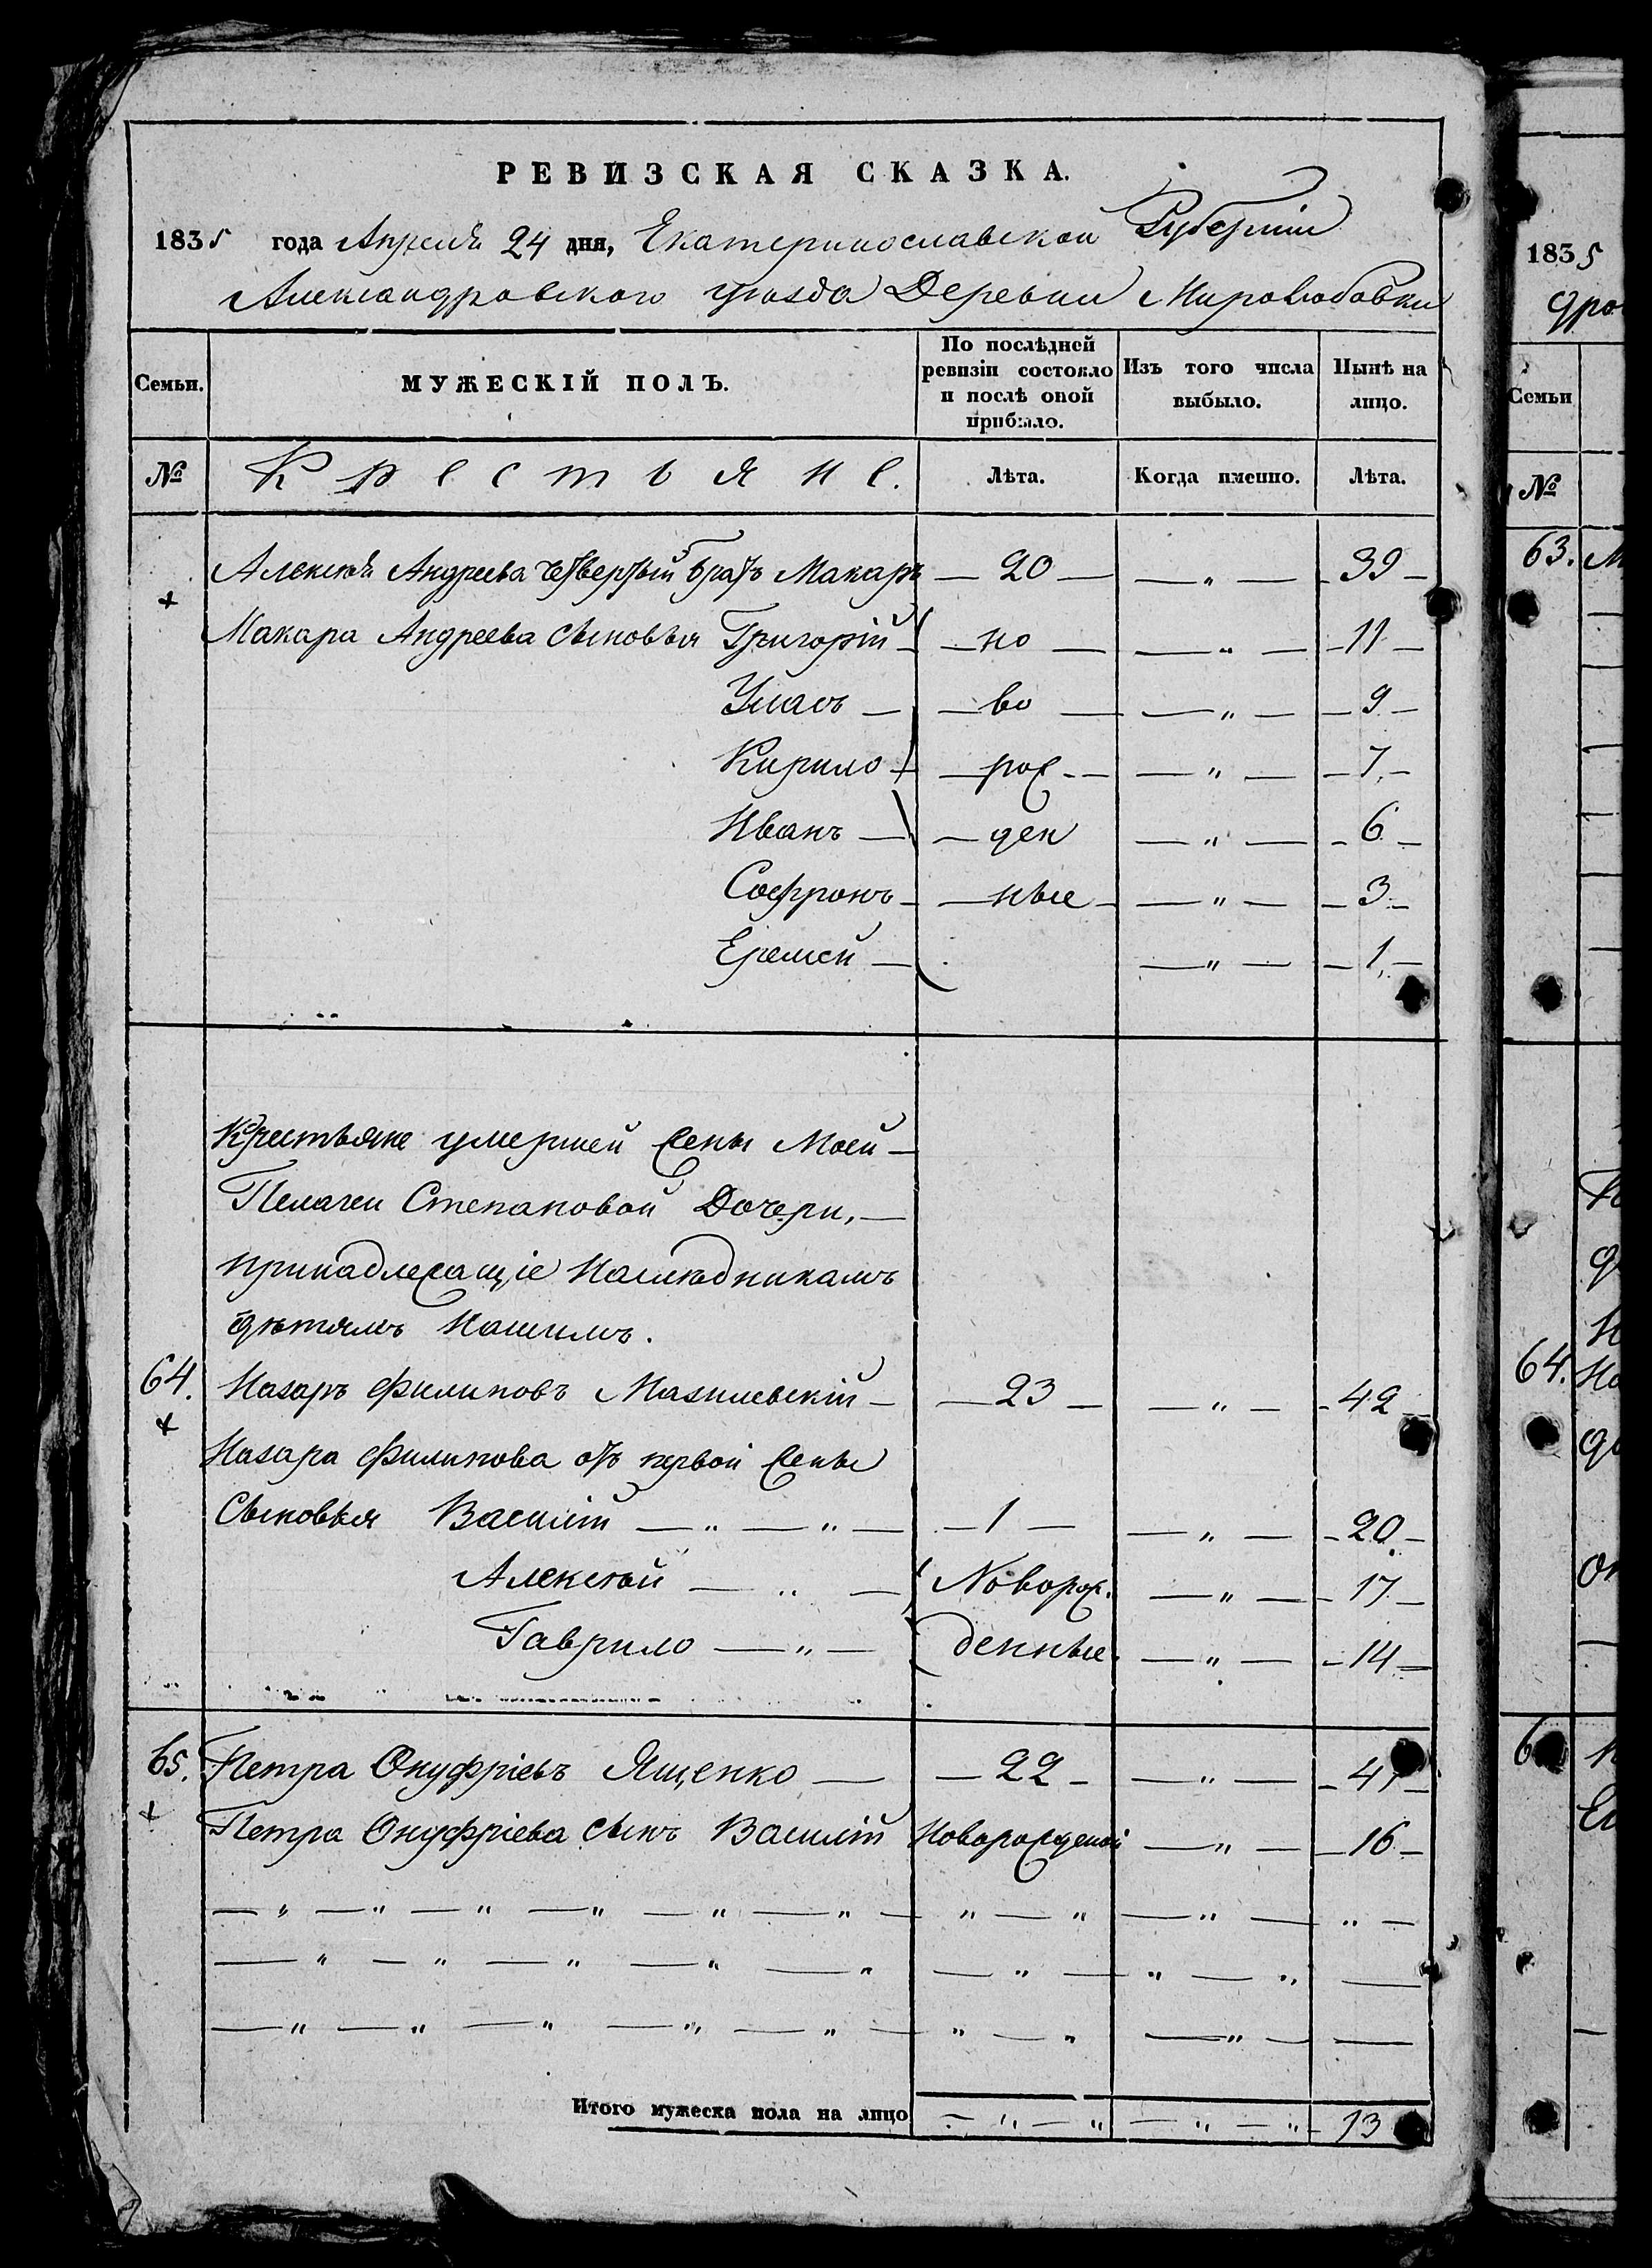 РЕВИЗСКАЯ СКАЗКА.
1835 года Апреля 24 дня, Екатеринославской Губерніи
Александровского уѣзда Деревни Миролюбовки
Семьи. МУЖЕСКІЙ ПОЛЪ. По послѣдней ревизіи состояло и послѣ оной прибыло. Изъ того числа выбыло. Нынѣ на лицо.
№ Крестьяне. Лѣта. Когда именно. Лѣта.
Алексѣя Андреева четвертый братъ Макаръ — 20 — — „ — - 39 -
Макара Андреева сыновья Григорій - — но — — „ — - 11 -
Улась — — во — — „ — - 9 -
Кирило - — рож - — — „ — - 7. -
Иванъ — — ден — „ — - 6 -
Софронъ - — ные - — „ — - 3 -
Еремей — — „ — - 1, -
Крестьяне умершей жены Моей —
Пелагеи Степановой Дочери, —
принадлежащіе Наслѣдникамъ
дѣтямъ Нашимъ.
64. Назаръ Филиповъ Мазилевскій - — 23 — — „ — - 42 -
Назара Филипова отъ первой жены
Сыновья Василій — „ — „ — — 1 — — „ — - 20 -
Алексѣй — „ — Новорож. — „ — - 17 -
Гаврило — „ — денные — „ — - 14 —
65. Петра Онуфріевъ Ященко — — 22 - — „ — - 41 -
Петра Онуфріева сынъ Василій Новорожденой — „ — - 16 -
Итого мужеска пола на лицо - „ — „ — „ — „ - 13
1835
дро
Семьи
№
63. М
64.